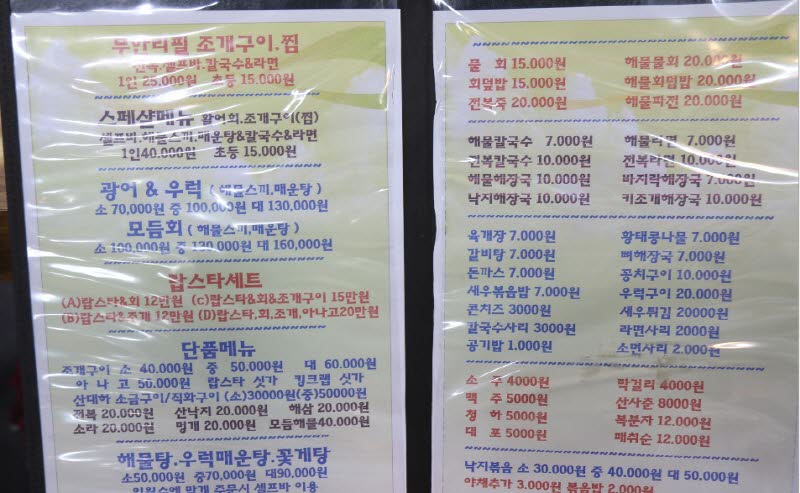 무한리필 조개구이.찜
전복.셀프바.칼국수&라면
1인 25.000원 초등 15.000원
스페샬메뉴 활어회.조개구이(찜)
셀프바.해물스끼.매운탕&칼국수&라면
1인40.000원 초등 15.000원
광어 & 우럭 ( 해물스끼,매운탕 )
소 70,000원 중 100,000원 대 130,000원
모듬회 ( 해물스끼,매운탕)
소 100,000원 중 130,000원 대 160,000원
랍스타세트
(A)랍스타&회 12만원 (c)랍스타&회&조개구이 15만원
(B)랍스타&조개 12만원 (D)랍스타,회,조개,아나고20만원
단품메뉴
조개구이 소 40.000원 중 50.000원 대 60.000원
아 나 고 50.000원 랍스타 싯가 킹크랩 싯가
산대하 소금구이/직화구이 (소)30000원(중)50000원
전복 20.000원 산낙지 20.000원 해삼 20.000원
소라 20.000원 멍개 20.000원 모듬해물40.000원
해물탕.우럭매운탕.꽃게탕
소50,000원 중70,000원 대90.000원
주문시 셀프바 이용
물 회 15.000원 해물물회 20.000원
회덮밥 15.000원 해물회덮밥 20.000원
전복죽 20.000원 해물파전 20.000원
해물칼국수 7.000원 해물라면 7.000원
전복칼국수 10.000원 전복라면 10.000원
해물해장국 10.000원 바지락해장국 7.000원
낙지해장국 10.000원 키조개해장국 10.000원
육개장 7.000원 황태콩나물 7.000원
갈비탕 7.000원 뼈해장국 7.000원
돈까스 7.000원 꽁치구이 10.000원
새우볶음밥 7.000원 우럭구이 20.000원
콘치즈 3000원 새우튀김 20000원
칼국수사리 3000원 라면사리 2000원
공기밥 1.000원 소면사리 2.000원
소 주 4000원 막걸리 4000원
맥 주 5000원 산사춘 8000원
청 하 5000원 복분자 12.000원
대 포 5000원 매취순 12.000원
낙지볶음 소 30.000원 중 40.000원 대 50.000원
야채추가 3.000원 볶음밥 2.000원